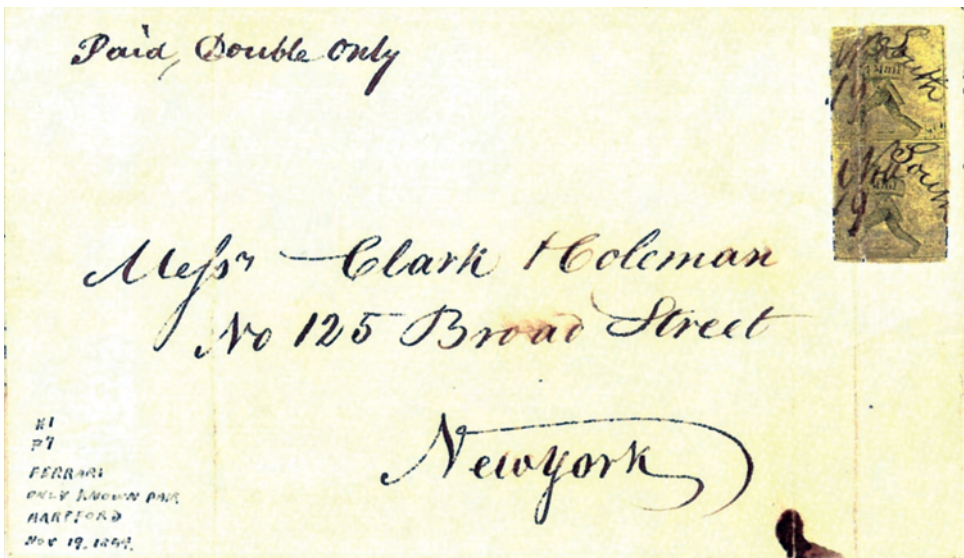 Paid, Double Only
South
Mail
19
Nov South
Mail
19
Messrs Clark & Coleman
No 125 Broad Street
Newyork
FERRARI
ONLY KNOWN PAIR
HARTFORD
Nov 19.